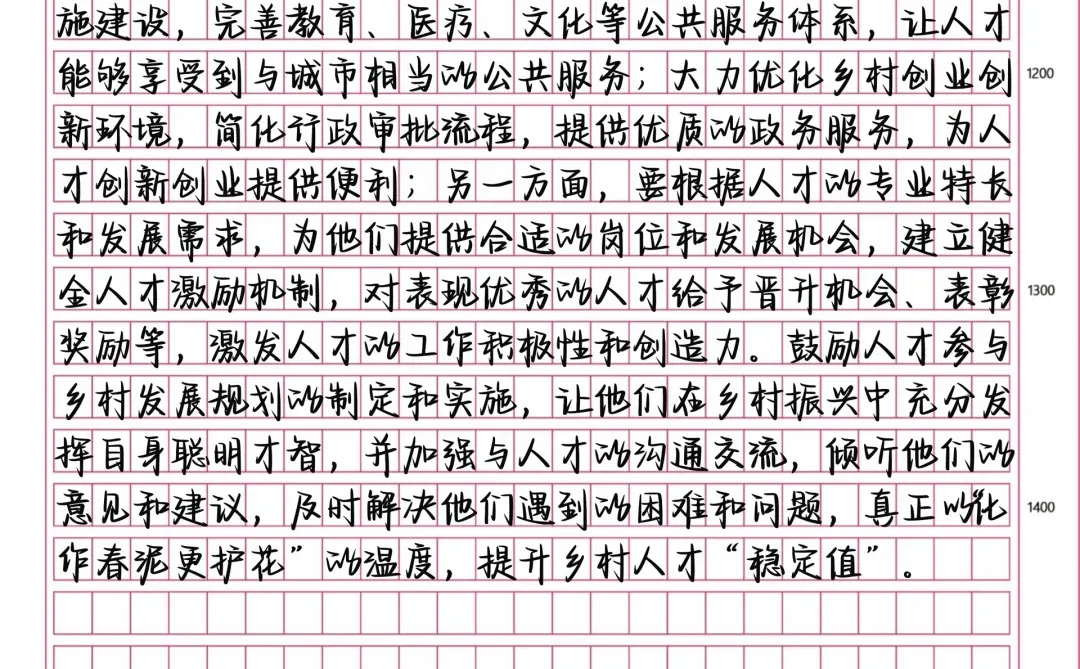 施建设，完善教育、医疗、文化等公共服务体系，让人才
能够享受到与城市相当的公共服务；大力优化乡村创业创
1200
新环境，简化行政审批流程，提供优质的政务服务，为人
才创新创业提供便利；另一方面，要根据人才的专业特长
和发展需求，为他们提供合适的岗位和发展机会，建立健
全人才激励机制，对表现优秀的人才给予晋升机会、表彰
1300
奖励等，激发人才的工作积极性和创造力。鼓励人才参与
乡村发展规划的制定和实施，让他们在乡村振兴中充分发
挥自身聪明才智，并加强与人才的沟通交流，倾听他们的
意见和建议，及时解决他们遇到的困难和问题，真正以“化
1400
作春泥更护花”的温度，提升乡村人才“稳定值”。